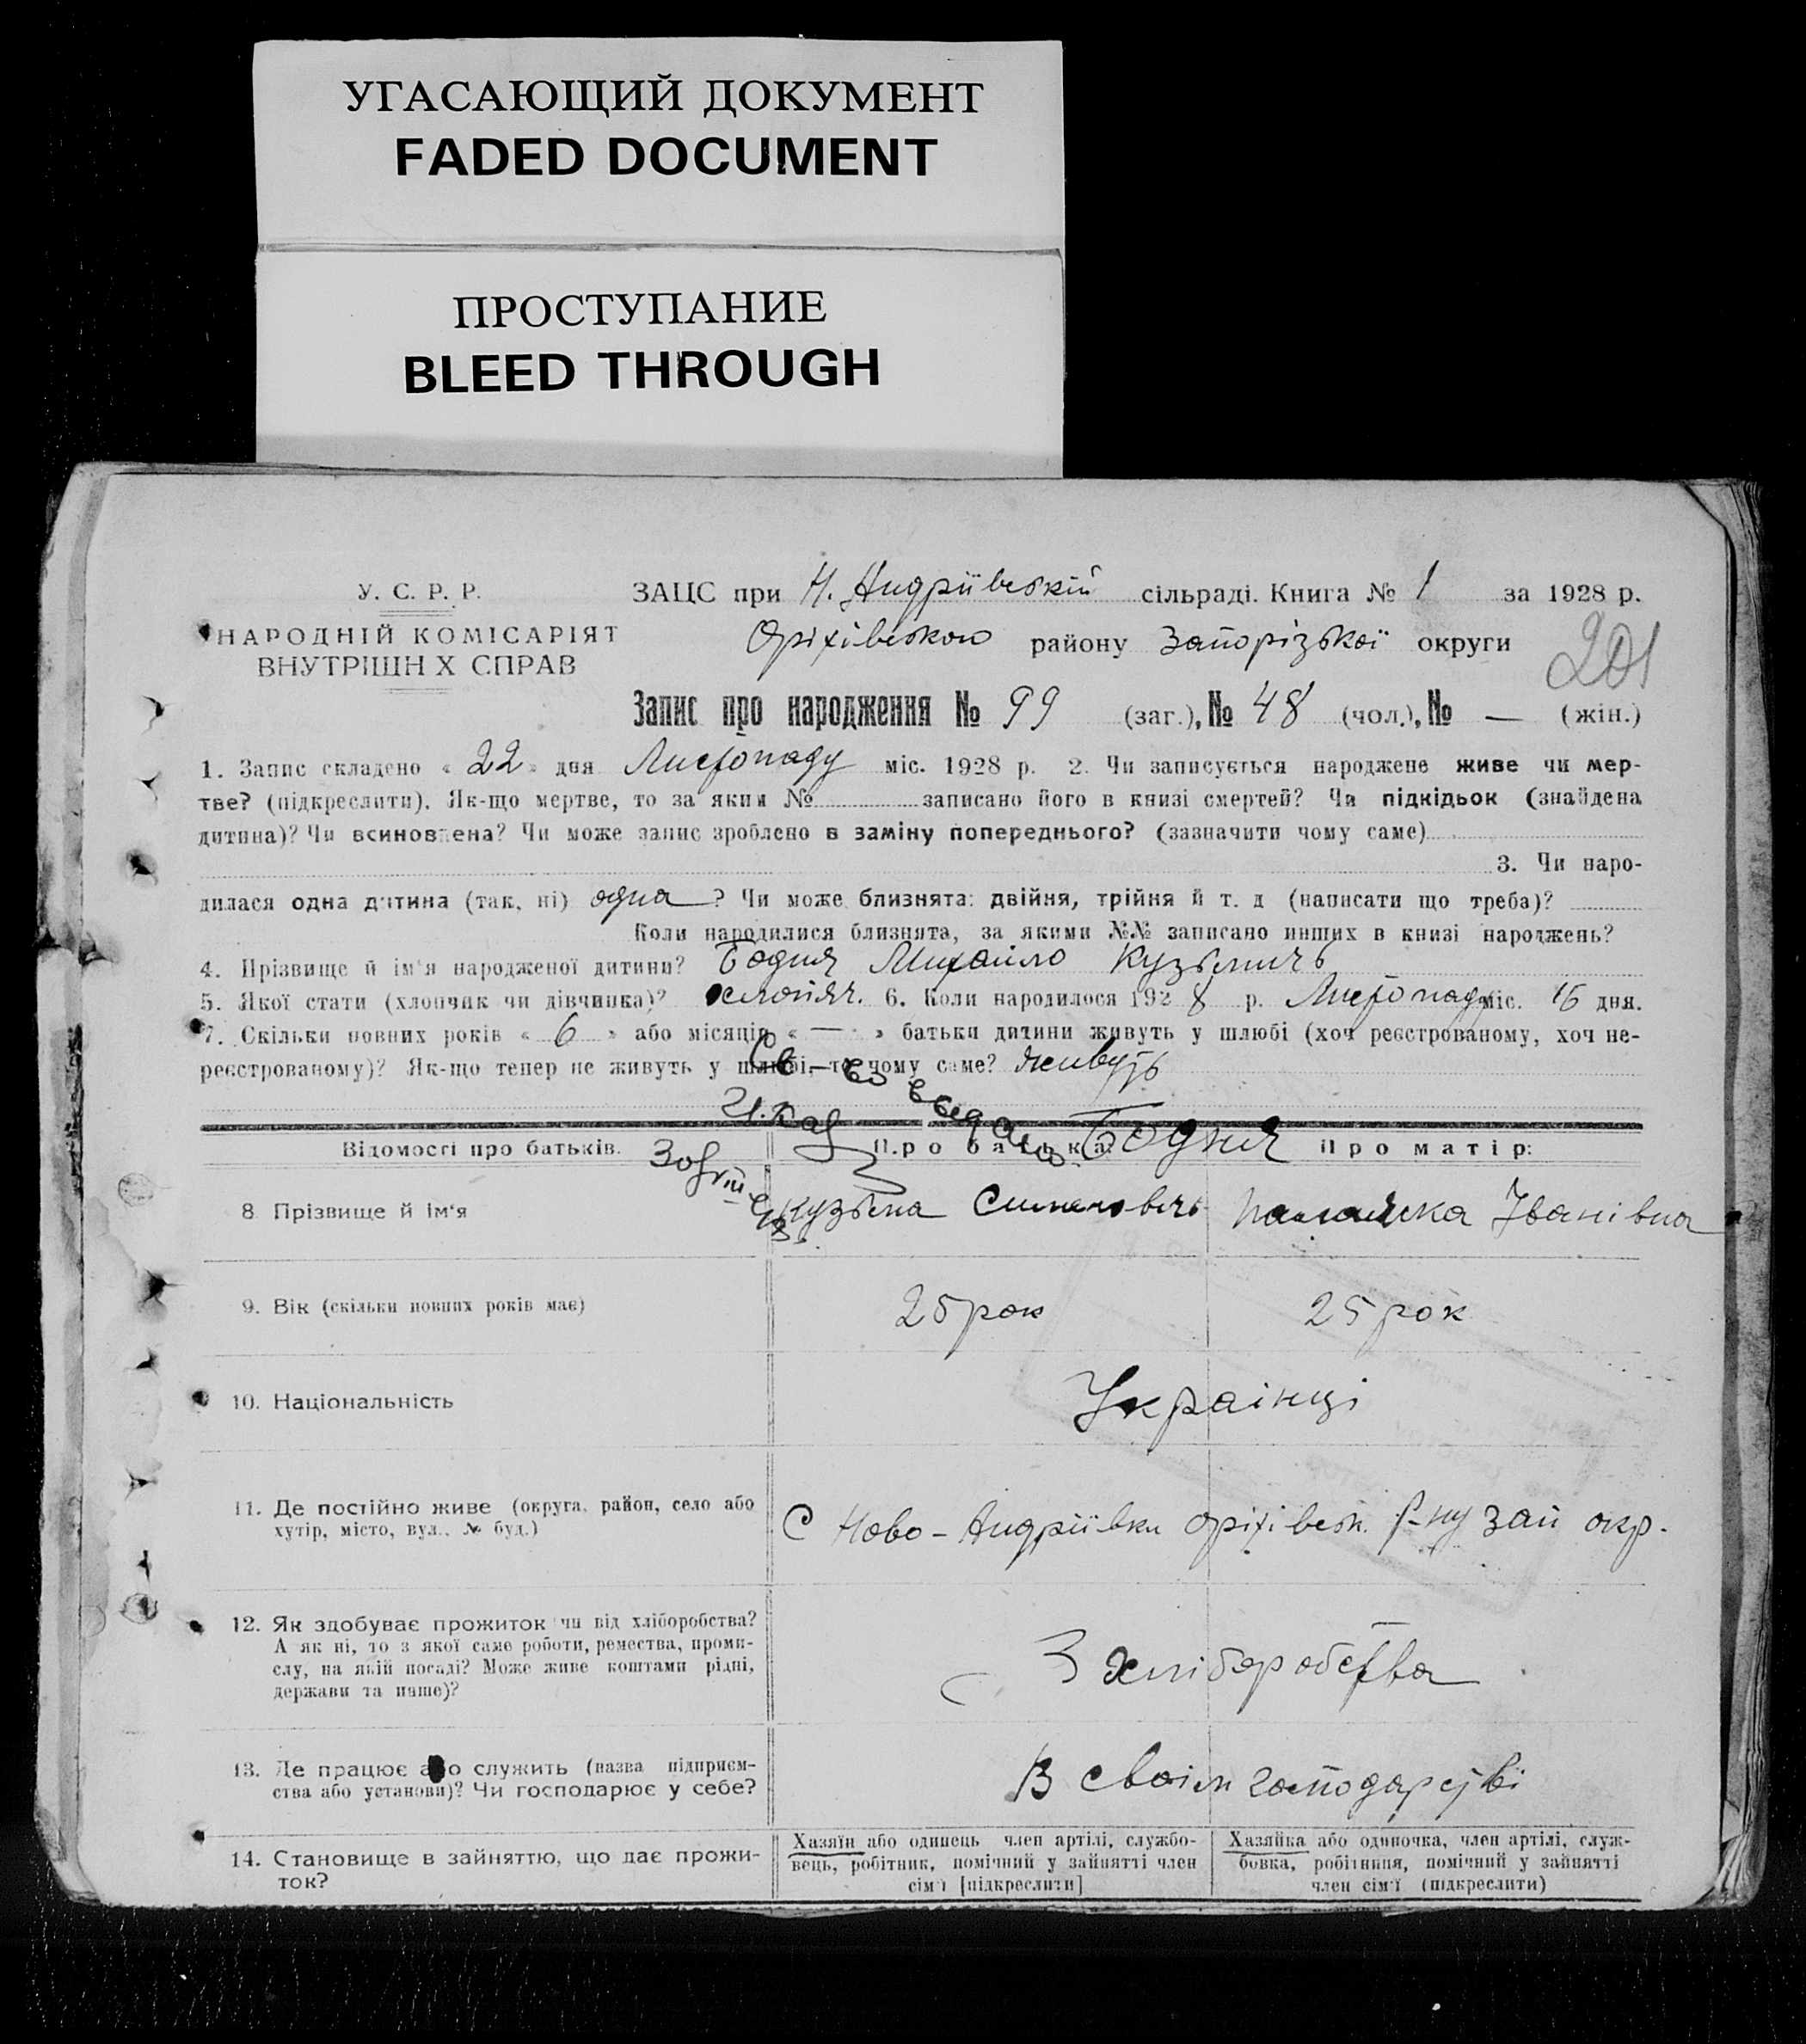 УГАСАЮЩИЙ ДОКУМЕНТ
FADED DOCUMENT
ПРОСТУПАНИЕ
BLEED THROUGH
У. С. Р. Р.
НАРОДНІЙ КОМІСАРІЯТ
ВНУТРІШН Х СПРАВ
ЗАЦС при Н. Андріївській сільраді. Книга № 1 за 1928 р.
Оріхівського району Запорізької округи
201
Запис про народження № 99 (заг.), № 48 (чол.), № — (жін.)
1. Запис складено « 22 » дня Листопаду міс. 1928 р. 2. Чи записується народжене живе чи мер-
тве? (підкреслити). Як-що мертве, то за яким № записано його в книзі смертей? Чи підкідьок (знайдена
дитина)? Чи всиновлена? Чи може запис зроблено в заміну попереднього? (зазначити чому саме)
3. Чи наро-
дилася одна дитина (так, ні) одна ? Чи може близнята: двійня, трійня й т. д (написати що треба)?
Коли народилися близнята, за якими №№ записано инших в книзі народжень?
4. Прізвище й ім'я народженої дитини? Бодня Михайло Кузьмичь
5. Якої стати (хлопчик чи дівчинка)? хлопяч. 6. Коли народилося 1928 р. Листопаду міс. 16 дня.
7. Скільки повних років « 6 » або місяців « — » батьки дитини живуть у шлюбі (хоч реєстрованому, хоч не-
реєстрованому)? Як-що тепер не живуть у шлюбі, то чому саме? живуть
Відомості про батьків. Про батька: Бодня Про матір:
8 Прізвище й ім'я Кузьма Семенович Палажка Іванівна
9. Вік (скільки повних років має) 25 рок 25 рок
10. Національність Українці
11. Де постійно живе (округа, район, село або
хутір, місто, вул., № буд.) С Ново-Андріївки Оріхівськ. р-ну Зап окр.
12. Як здобуває прожиток чи від хліборобства?
А як ні, то з якої саме роботи, ремества, проми-
слу, на якій посаді? Може живе коштами рідні,
держави та инше)? З хліборобства
13. Де працює або служить (назва підприєм-
ства або установи)? Чи господарює у себе? В своім господарстві
14. Становище в зайняттю, що дає прожи-
ток?
Хазяїн або одинець член артілі, службо-
вець, робітник, помічний у зайнятті член
сім'ї [підкреслити]
Хазяйка або одиночка, член артілі, служ-
бовка, робітниця, помічний у зайнятті
член сім'ї (підкреслити)